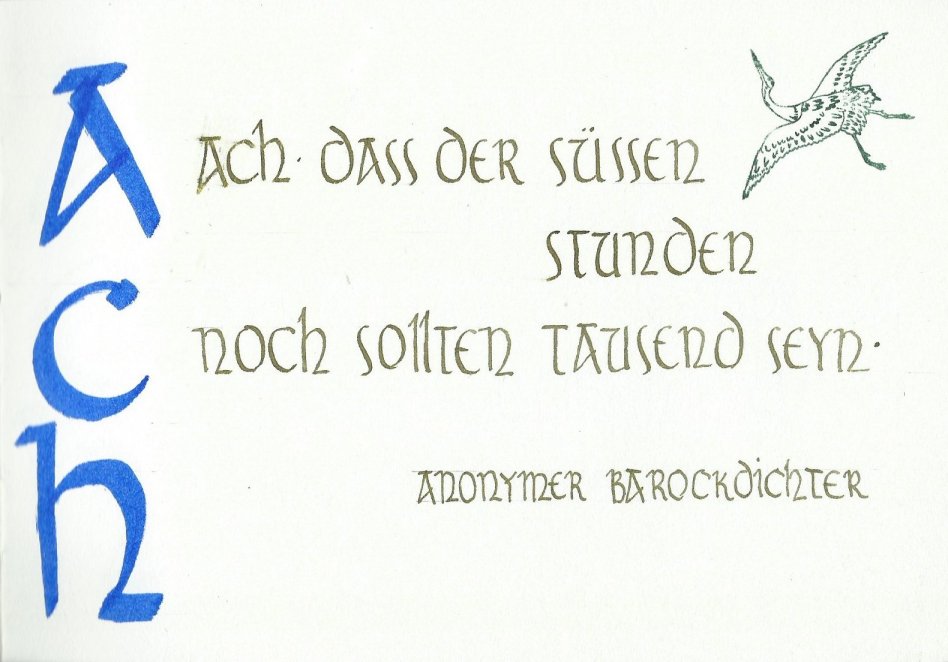 Ach
Ach · dass der süssen
Stunden
noch sollten tausend seyn ·
Anonymer Barockdichter